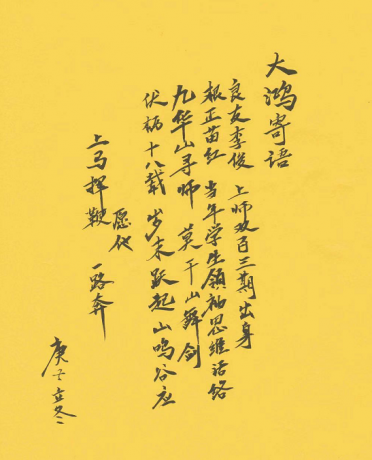 大鸿寄语
良友李俊 上师双百三期出身
根正苗红 当年学生领袖思维活络
九华山寻师 莫干山舞剑
伏枥十八载 岁末跃起 山鸣谷应
上马挥鞭 愿他一路奔
庚子立冬